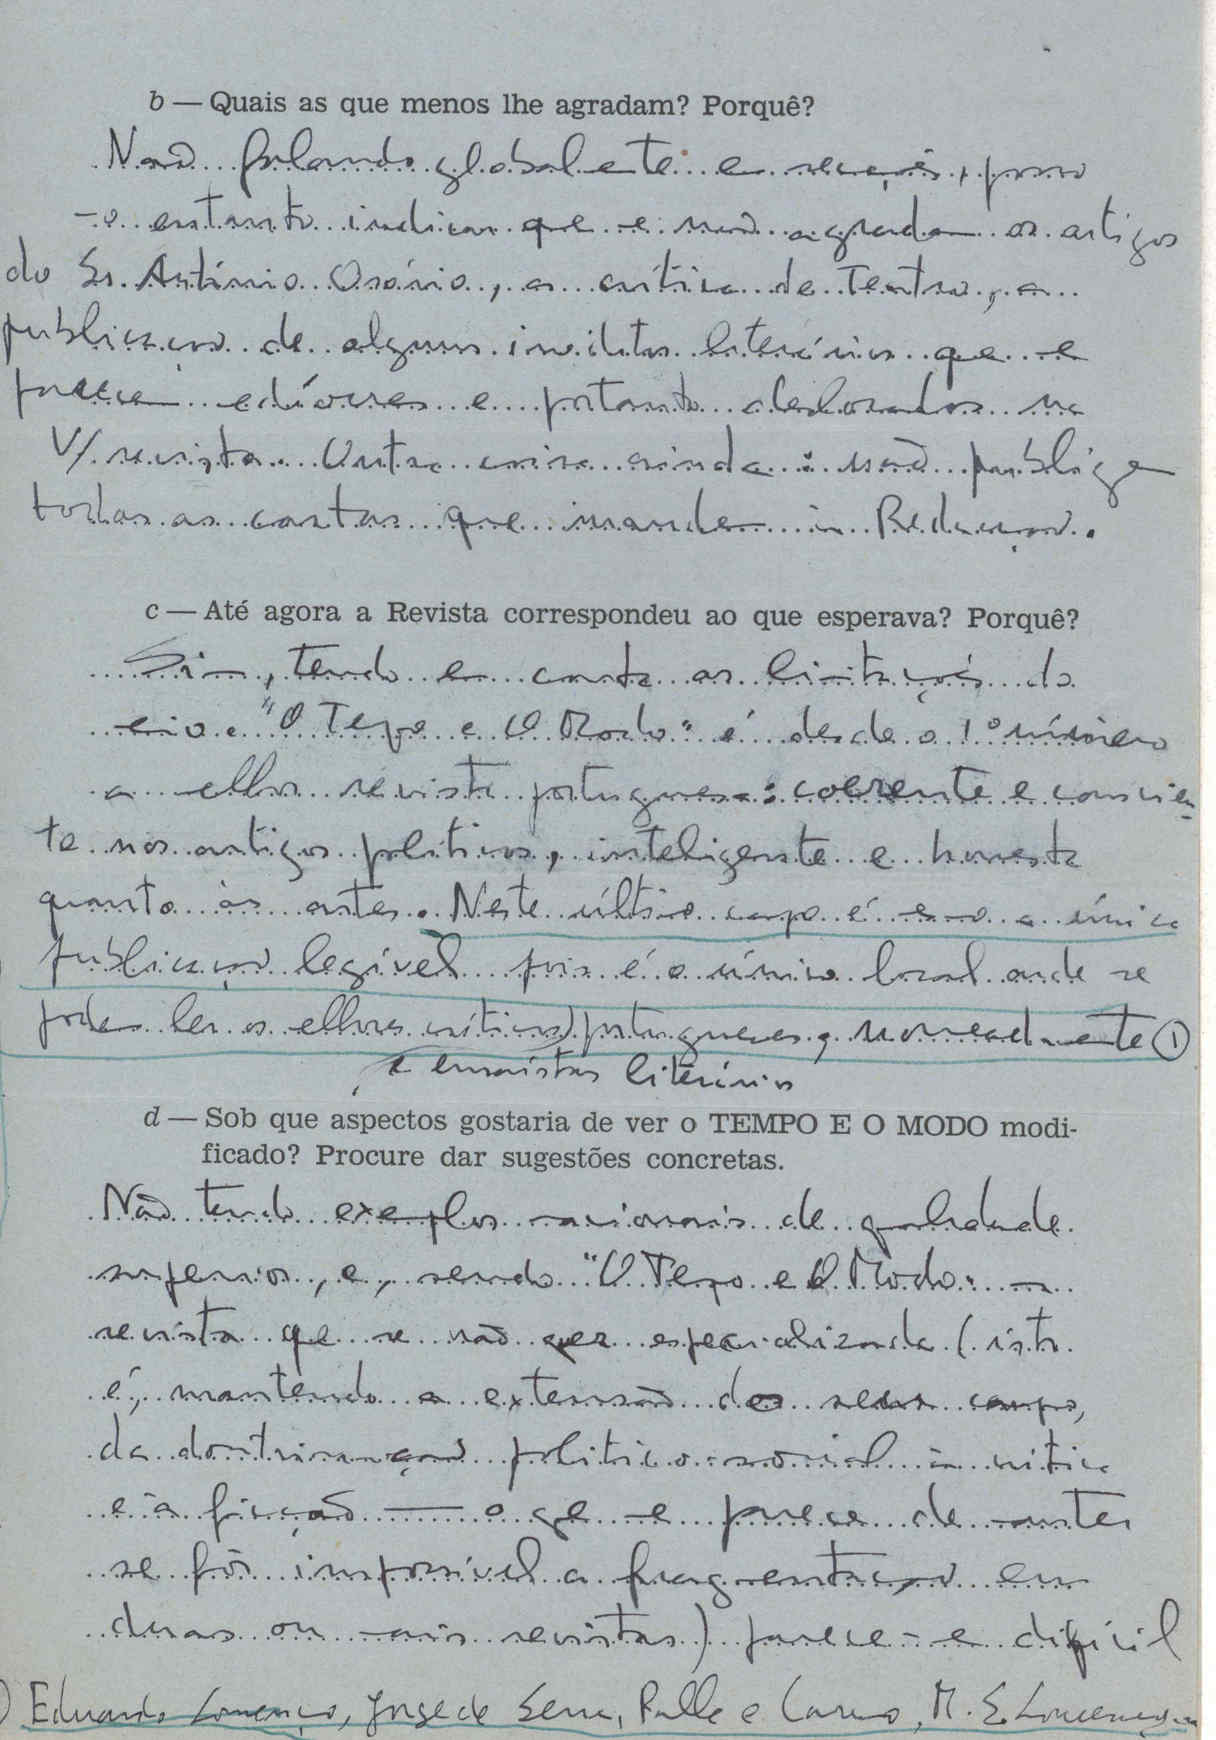 b — Quais as que menos lhe agradam? Porquê?
Não falando globalmente em secções, posso
no entanto indicar que me não agradam os artigos
do Sr. António Osório, a crítica de Teatro, a
publicação de alguns inéditos literários que me
parecem medíocres e portanto deslocados na
V/ revista. Outra coisa ainda: não publiquem
todas as cartas que mandem à Redacção.
c — Até agora a Revista correspondeu ao que esperava? Porquê?
Sim, tendo em conta as limitações do
meio. "O Tempo e O Modo" é desde o 1º número
a melhor revista portuguesa: coerente e conscien-
te nos artigos políticos, inteligente e honesta
quanto às artes. Neste último campo é mesmo a única
publicação legível pois é o único local onde se
podem ler os melhores críticos portugueses, nomeadamente ①
e ensaístas literários
d — Sob que aspectos gostaria de ver o TEMPO E O MODO modi-
ficado? Procure dar sugestões concretas.
Não tendo exemplos nacionais de qualidade
superior, e, sendo "O Tempo e O Modo" uma
revista que se não quer especializada (isto
é, mantendo a extensão do seu campo,
da doutrinação político-social à crítica
e à ficção — o que me parece de manter
se fôr impossível a fragmentação em
duas ou mais revistas) parece-me difícil
① Eduardo Lourenço, Jorge de Sena, Palla e Carmo, M. S. Lourenço